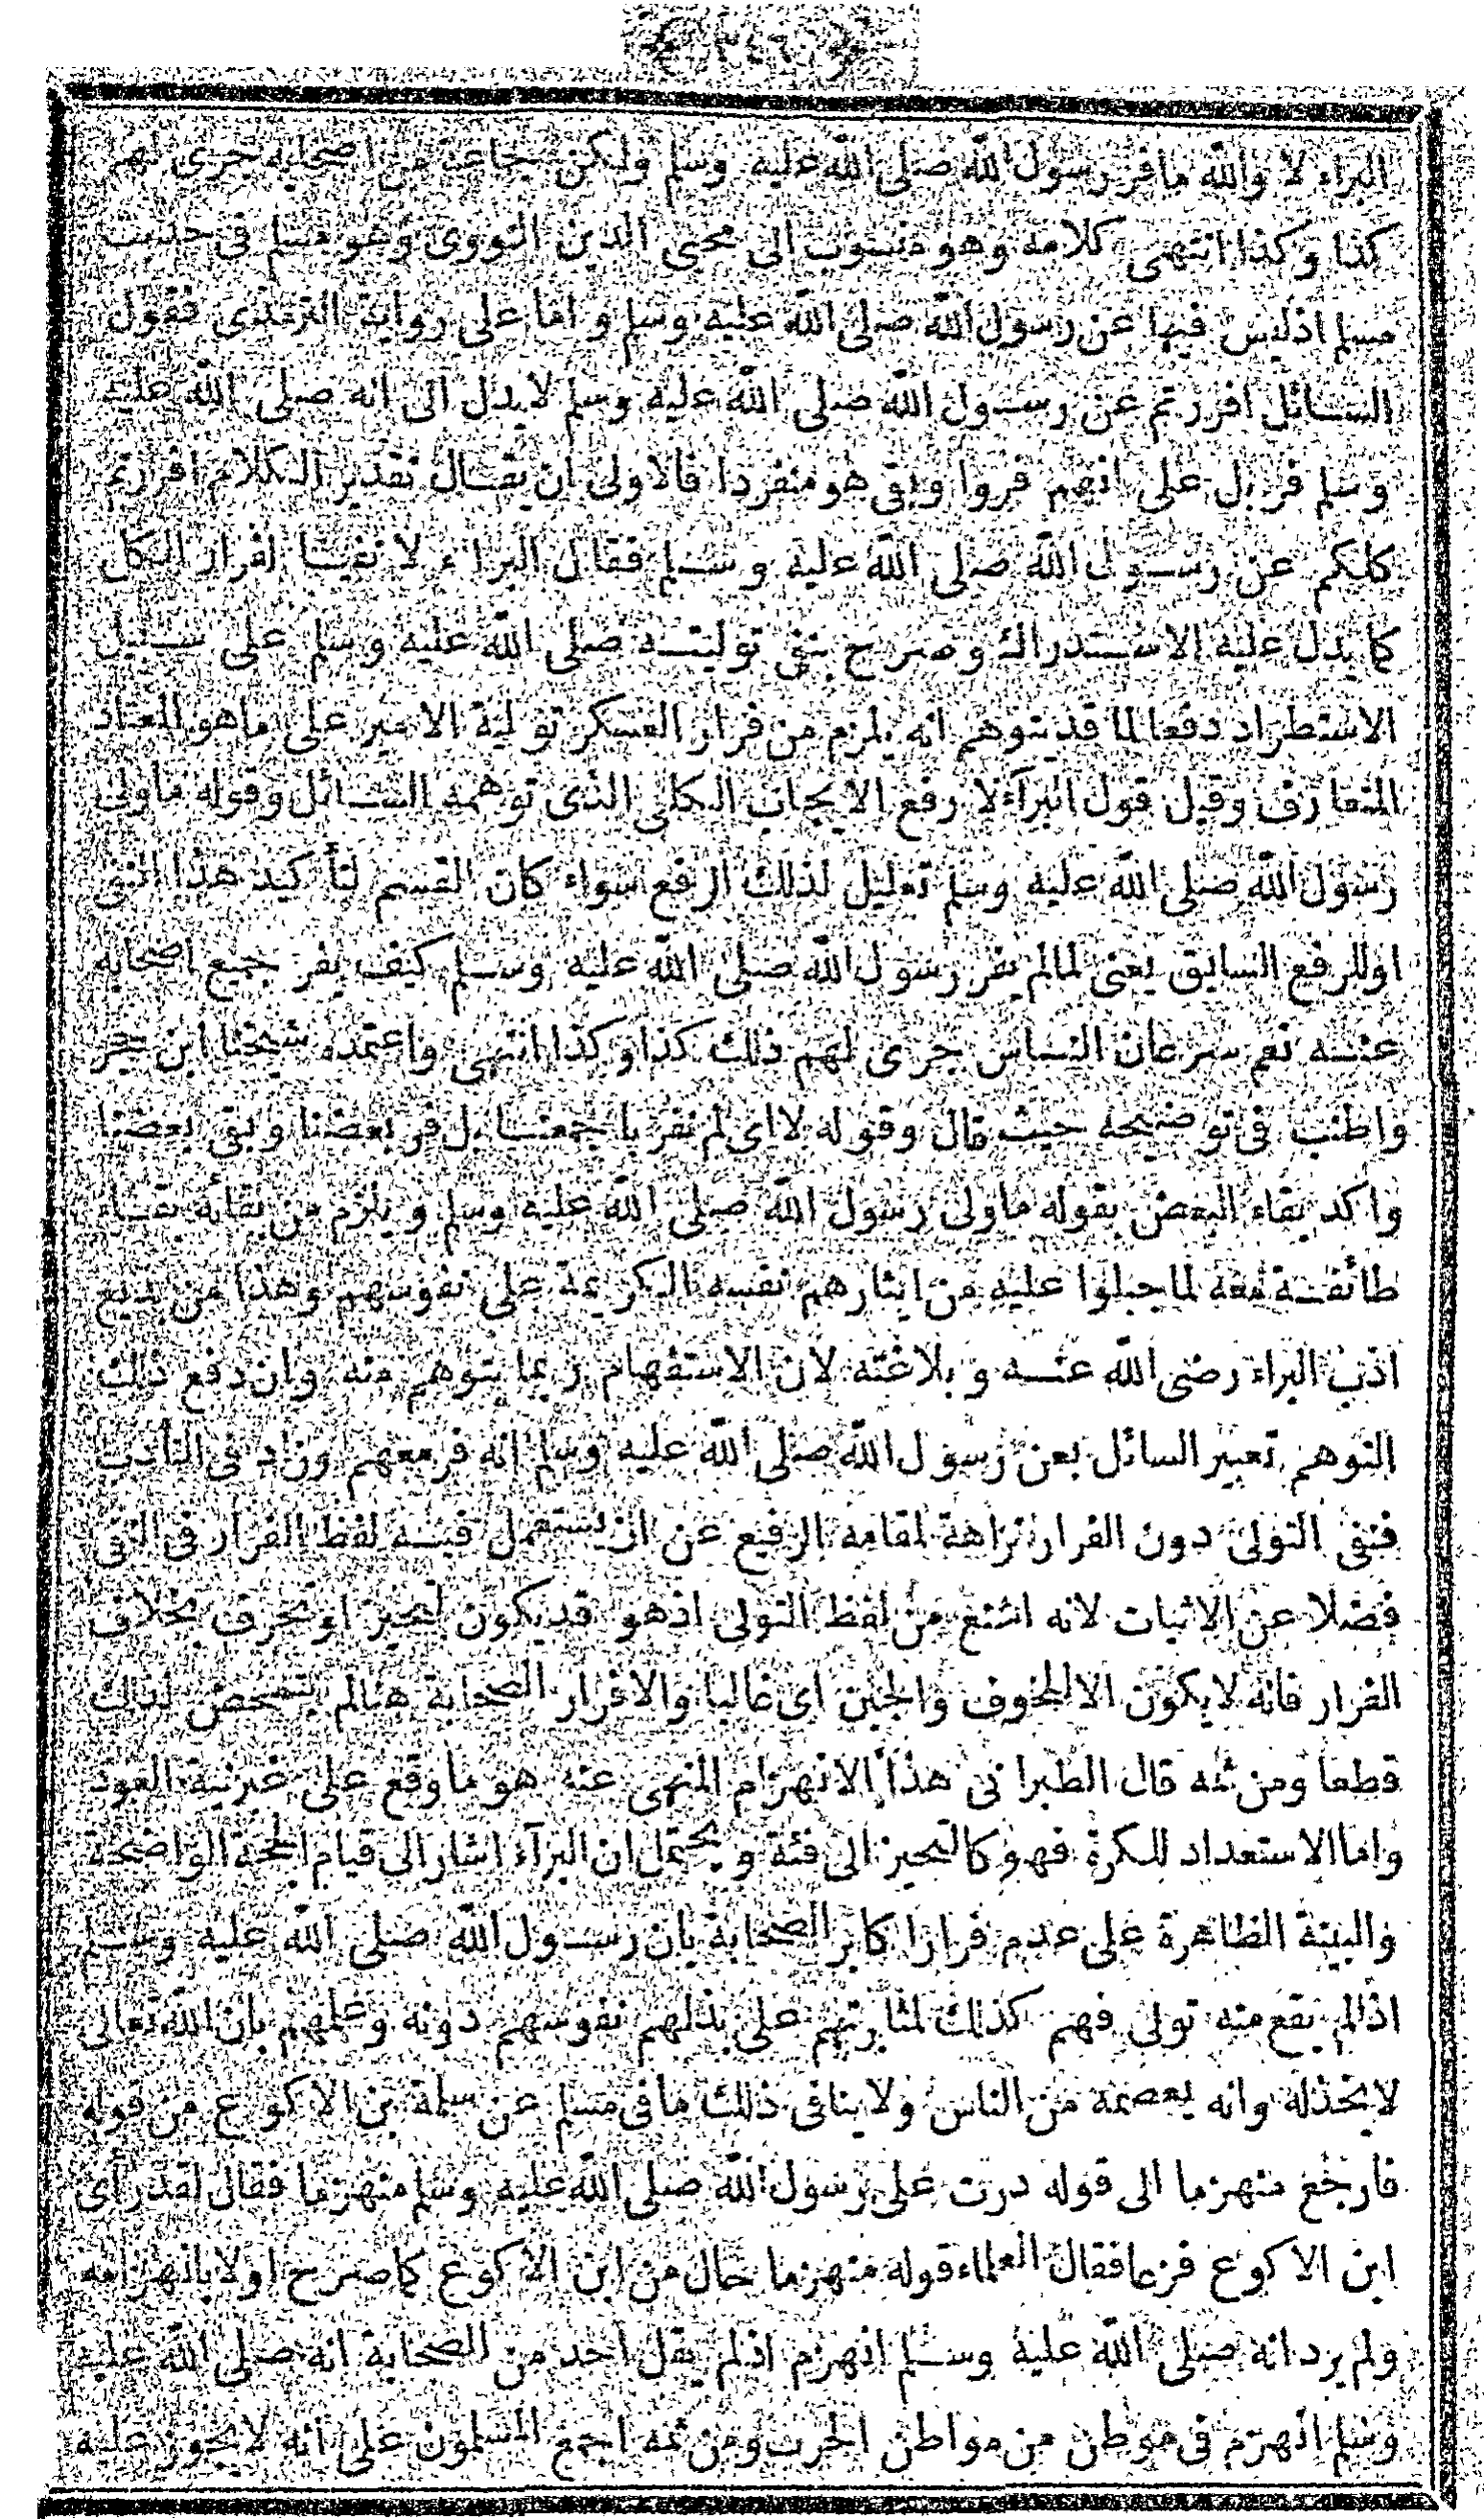 البراء لا والله مافر رسول الله صلى الله عليه وسلم ولكن جماعة من اصحابه جرى لهم
كذا وكذا انتهى كلامه وهو منسوب الى محيى الدين النووى وهو مسلم فى حديث
مسلم اذليس فيها عن رسول الله صلى الله عليه وسلم واما على رواية الترمذى فقول
السائل افررتم عن رسول الله صلى الله عليه وسلم لايدل الى انه صلى الله عليه
وسلم فر بل على انهم فروا وبقى هو منفردا فالاولى ان يقال تقدير الكلام افررتم
كلكم عن رسول الله صلى الله عليه وسلم فقال البراء لا نفيا لفرار الكل
كما يدل عليه الاستدراك وصرح بنفى توليته صلى الله عليه وسلم على سبيل
الاستطراد دفعا لما قد يتوهم انه يلزم من فرار العسكر تولية الامير على ماهو المعتاد
المتعارف وقيل قول البرآء لا رفع الايجاب الكلى الذى توهمه السائل وقوله ماولى
رسول الله صلى الله عليه وسلم تعليل لذلك الرفع سواء كان القسم لتأكيد هذا النفى
اوللرفع السابق يعنى لمالم يفر رسول الله صلى الله عليه وسلم كيف يفر جميع اصحابه
عنه نعم سرعان الناس جرى لهم ذلك كذا وكذا انتهى واعتمده شيخنا ابن حجر
واطنب فى توضيحه حيث قال وقوله لا اى لم نفر باجمعنا بل فر بعضنا وبقى بعضنا
واكد بقاء البعض بقوله ماولى رسول الله صلى الله عليه وسلم ويلزم من بقائه بقاء
طائفة معه لماجبلوا عليه من ايثارهم نفسه الكريمة على نفوسهم وهذا من بديع
ادب البراء رضى الله عنه وبلاغته لان الاستفهام ربما يتوهم منه وان دفع ذلك
التوهم تعبير السائل بعن رسول الله صلى الله عليه وسلم انه فر معهم وزاد فى التأدب
فنفى التولى دون الفرار نزاهة لمقامه الرفيع عن ان يستعمل فيه لفظ الفرار فى النفى
فضلا عن الاثبات لانه اشنع من لفظ التولى اذهو قد يكون لتحيز او تحرف بخلاف
الفرار فانه لايكون الا للخوف والجبن اى غالبا والافرار الصحابة هنالم يتمحض لذلك
قطعا ومن ثمه قال الطبرانى هذا الانهزام المنهى عنه هو ماوقع على غيرنية العود
واما الاستعداد للكرة فهو كالتحيز الى فئة ويحتمل ان البرآء اشار الى قيام الحجة الواضحة
والبينة الظاهرة على عدم فرار اكابر الصحابة بان رسول الله صلى الله عليه وسلم
اذالم يقع منه تولى فهم كذلك لمثابرتهم على بذلهم نفوسهم دونه وعلمهم بان الله تعالى
لايخذله وانه يعصمه من الناس ولاينافى ذلك مافى مسلم عن سلمة بن الاكوع من قوله
فارجع منهزما الى قوله درت على رسول الله صلى الله عليه وسلم منهزما فقال لقد رأى
ابن الاكوع فزعا فقال العلماء قوله منهزما حال من ابن الاكوع كماصرح اولا بانهزامه
ولم يرد انه صلى الله عليه وسلم انهزم اذلم يقل احد من الصحابة انه صلى الله عليه
وسلم انهزم فى موطن من مواطن الحرب ومن ثمه اجمع المسلمون على انه لايجوز عليه